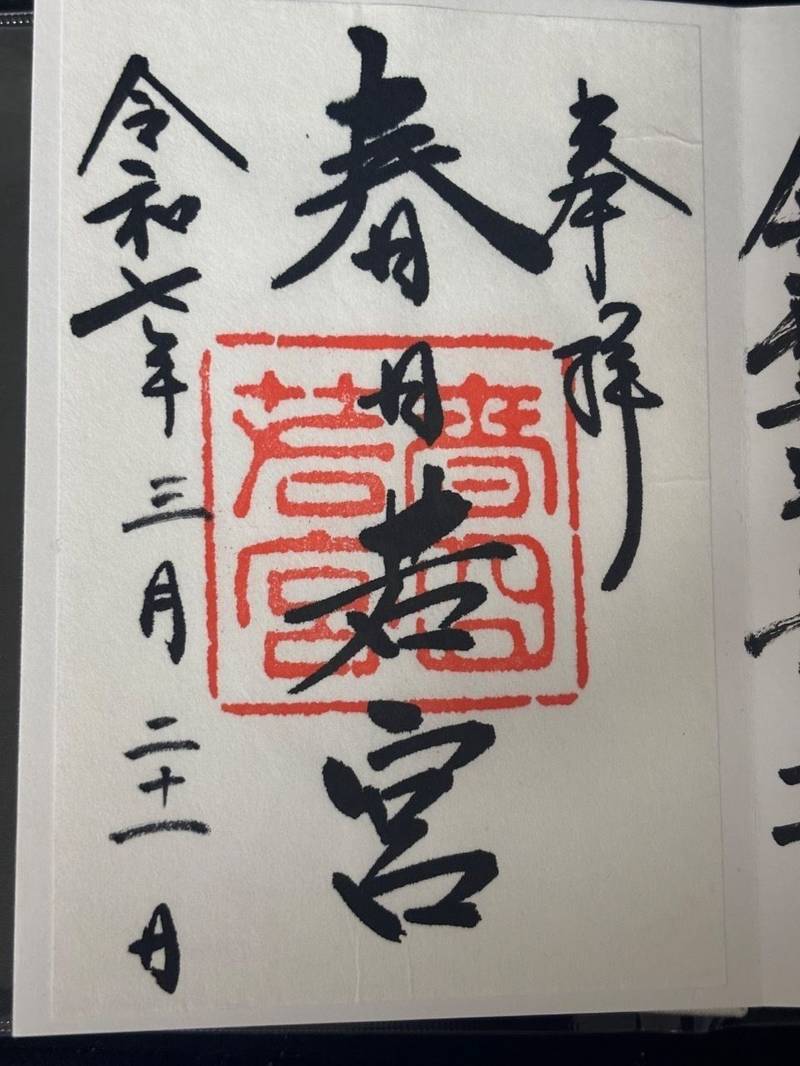 奉拝
春日若宮
春日若宮
令和七年三月二十一日